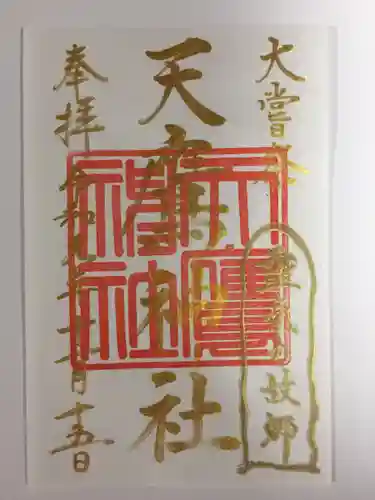 大嘗祭
故郷
天鷹神社
奉拝 令和元年十一月十五日
天鷹神社